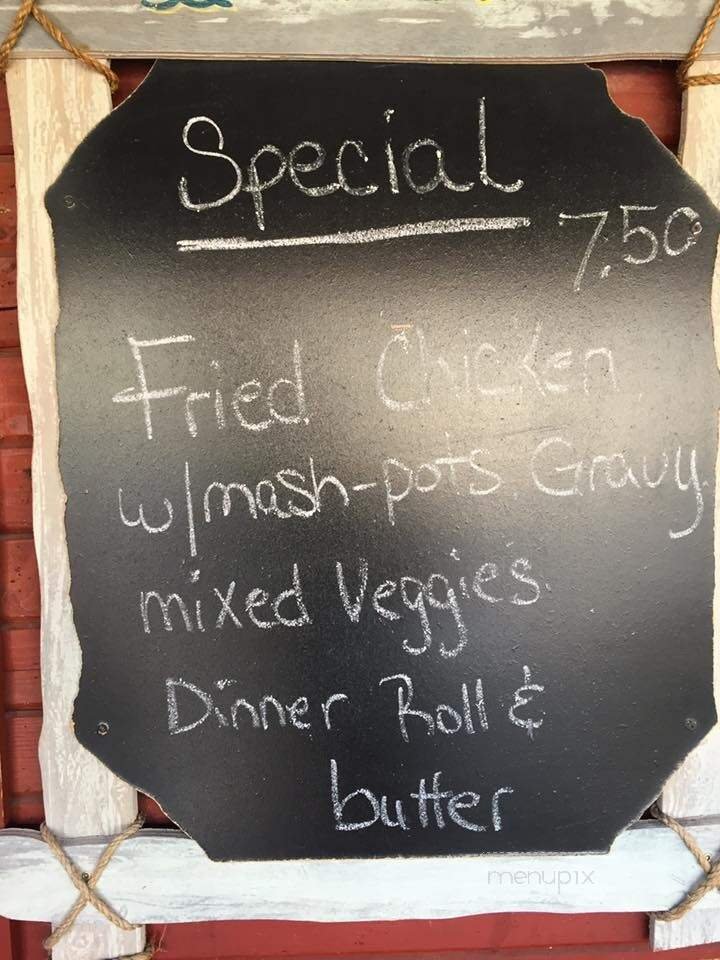 Special
7.50
Fried Chicken
w/mash-pots. Gravy
mixed Veggies
Dinner Roll &
butter
menupix